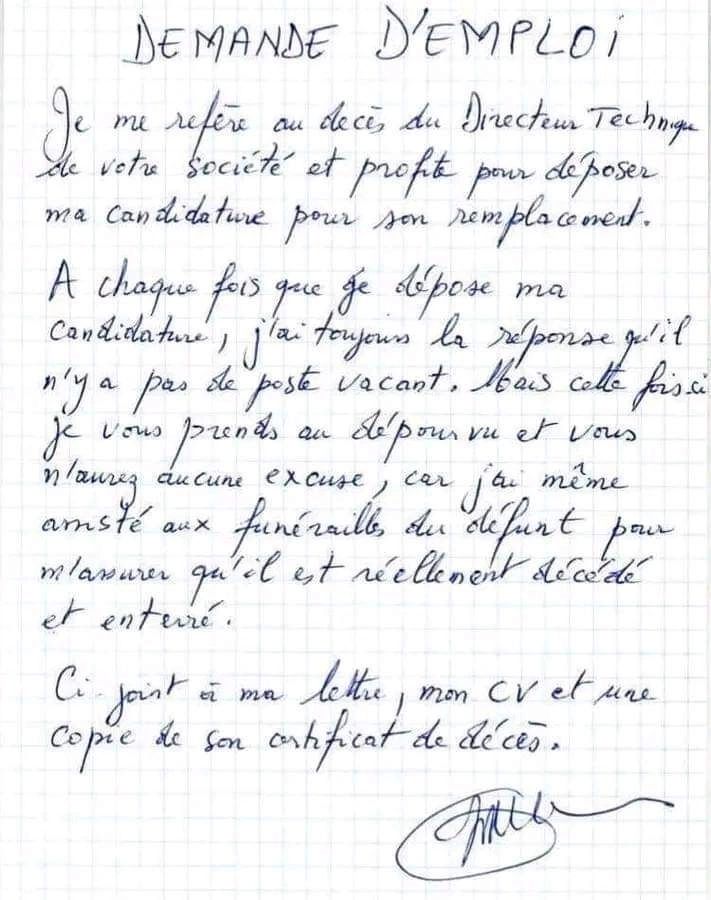 DEMANDE D'EMPLOI
Je me refère au decès du Directeur Technique
de votre société et profite pour déposer
ma candidature pour son remplacement.
A chaque fois que je dépose ma
candidature, j'ai toujours la réponse qu'il
n'y a pas de poste vacant. Mais cette fois ci
je vous prends au dépourvu et vous
n'aurez aucune excuse, car j'ai même
assisté aux funérailles du défunt pour
m'assurer qu'il est réellement décédé
et enterré.
Ci-joint à ma lettre, mon CV et une
copie de son certificat de décès.